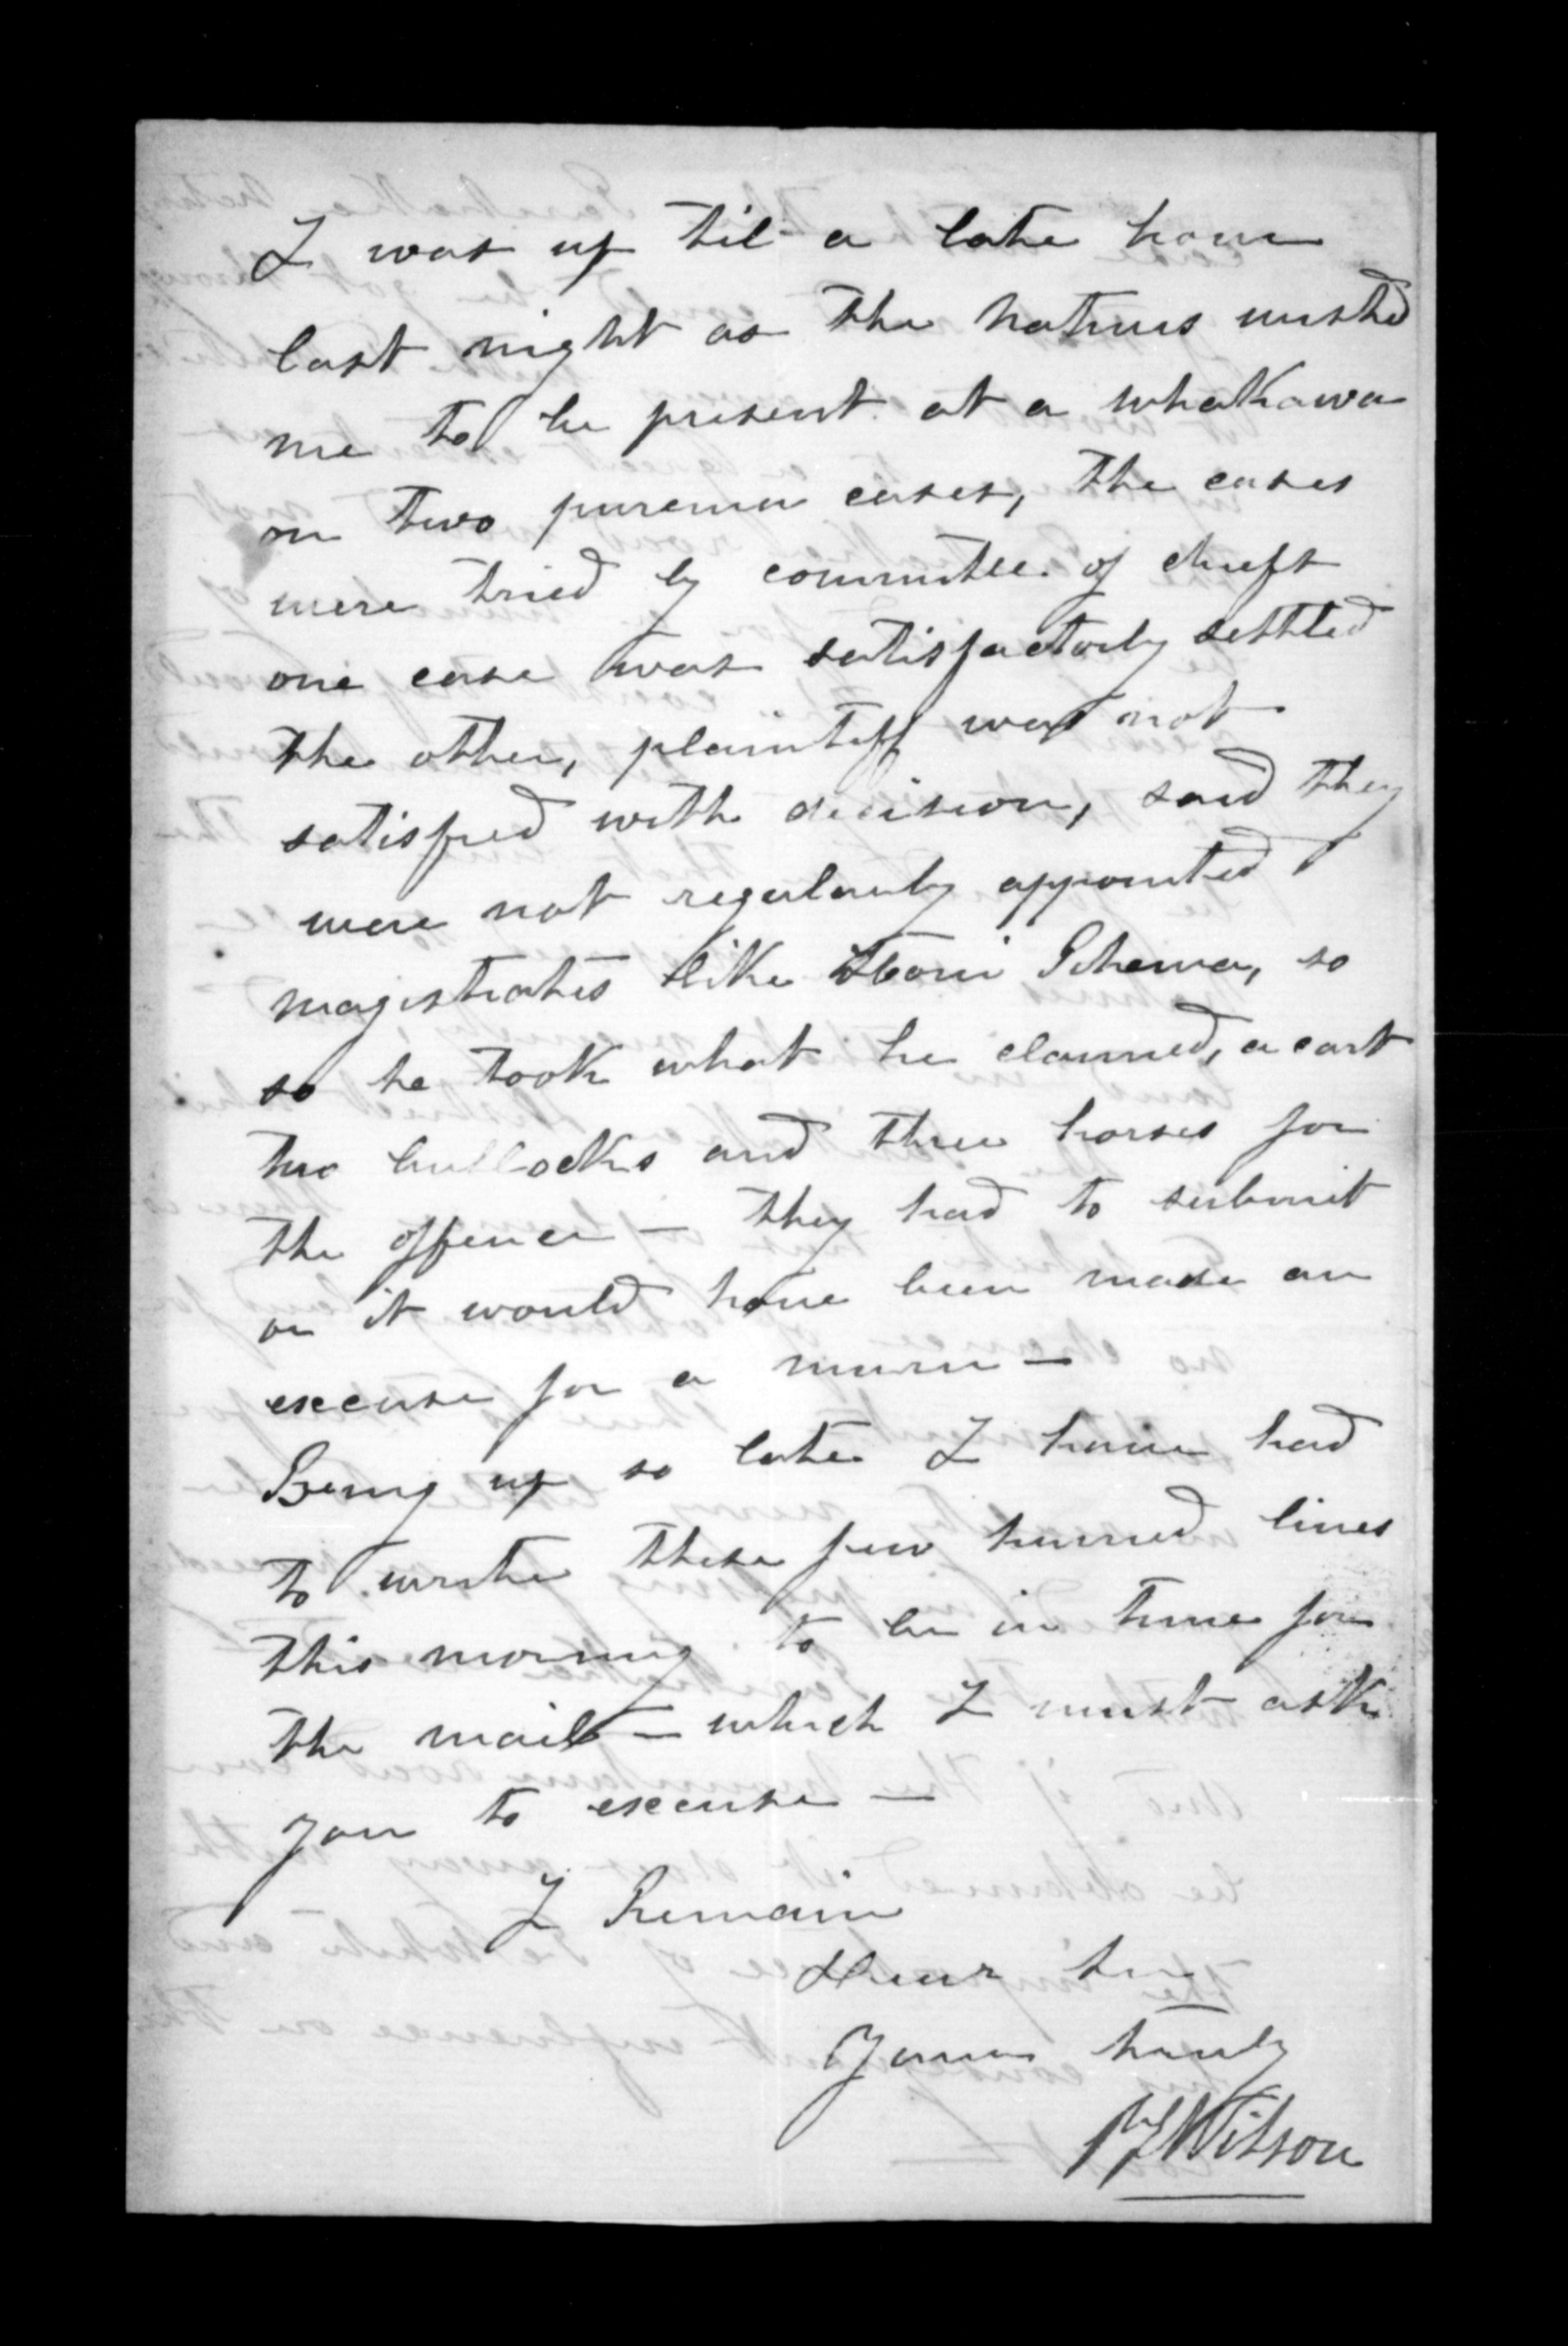 I was up til a late hour
last night as the natives wished
me to be present at a whakawa
on two purema cases, the cases
were tried by committee of chiefs
one case was satisfactorly settled
the other, plaintiff was not
satisfied with decision, said they
were not regularly appointed
magistrates like Hoani Pihama, so
so he took what he claimed, a cart
two bullocks and three horses for
the offence — they had to submit
or it would have been made an
excuse for a muru —
Being up so late I have had
to write these few hurried lines
this morning to be in time for
the mail — which I must ask
you to excuse —
I Remain
Dear Sir
Yours truly
Wilson